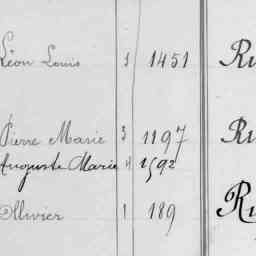 Léon Louis 3 1451 Ru
Pierre Marie 3 1197 Ru
Auguste Marie 4 1592
Ollivier 1 189 Ru